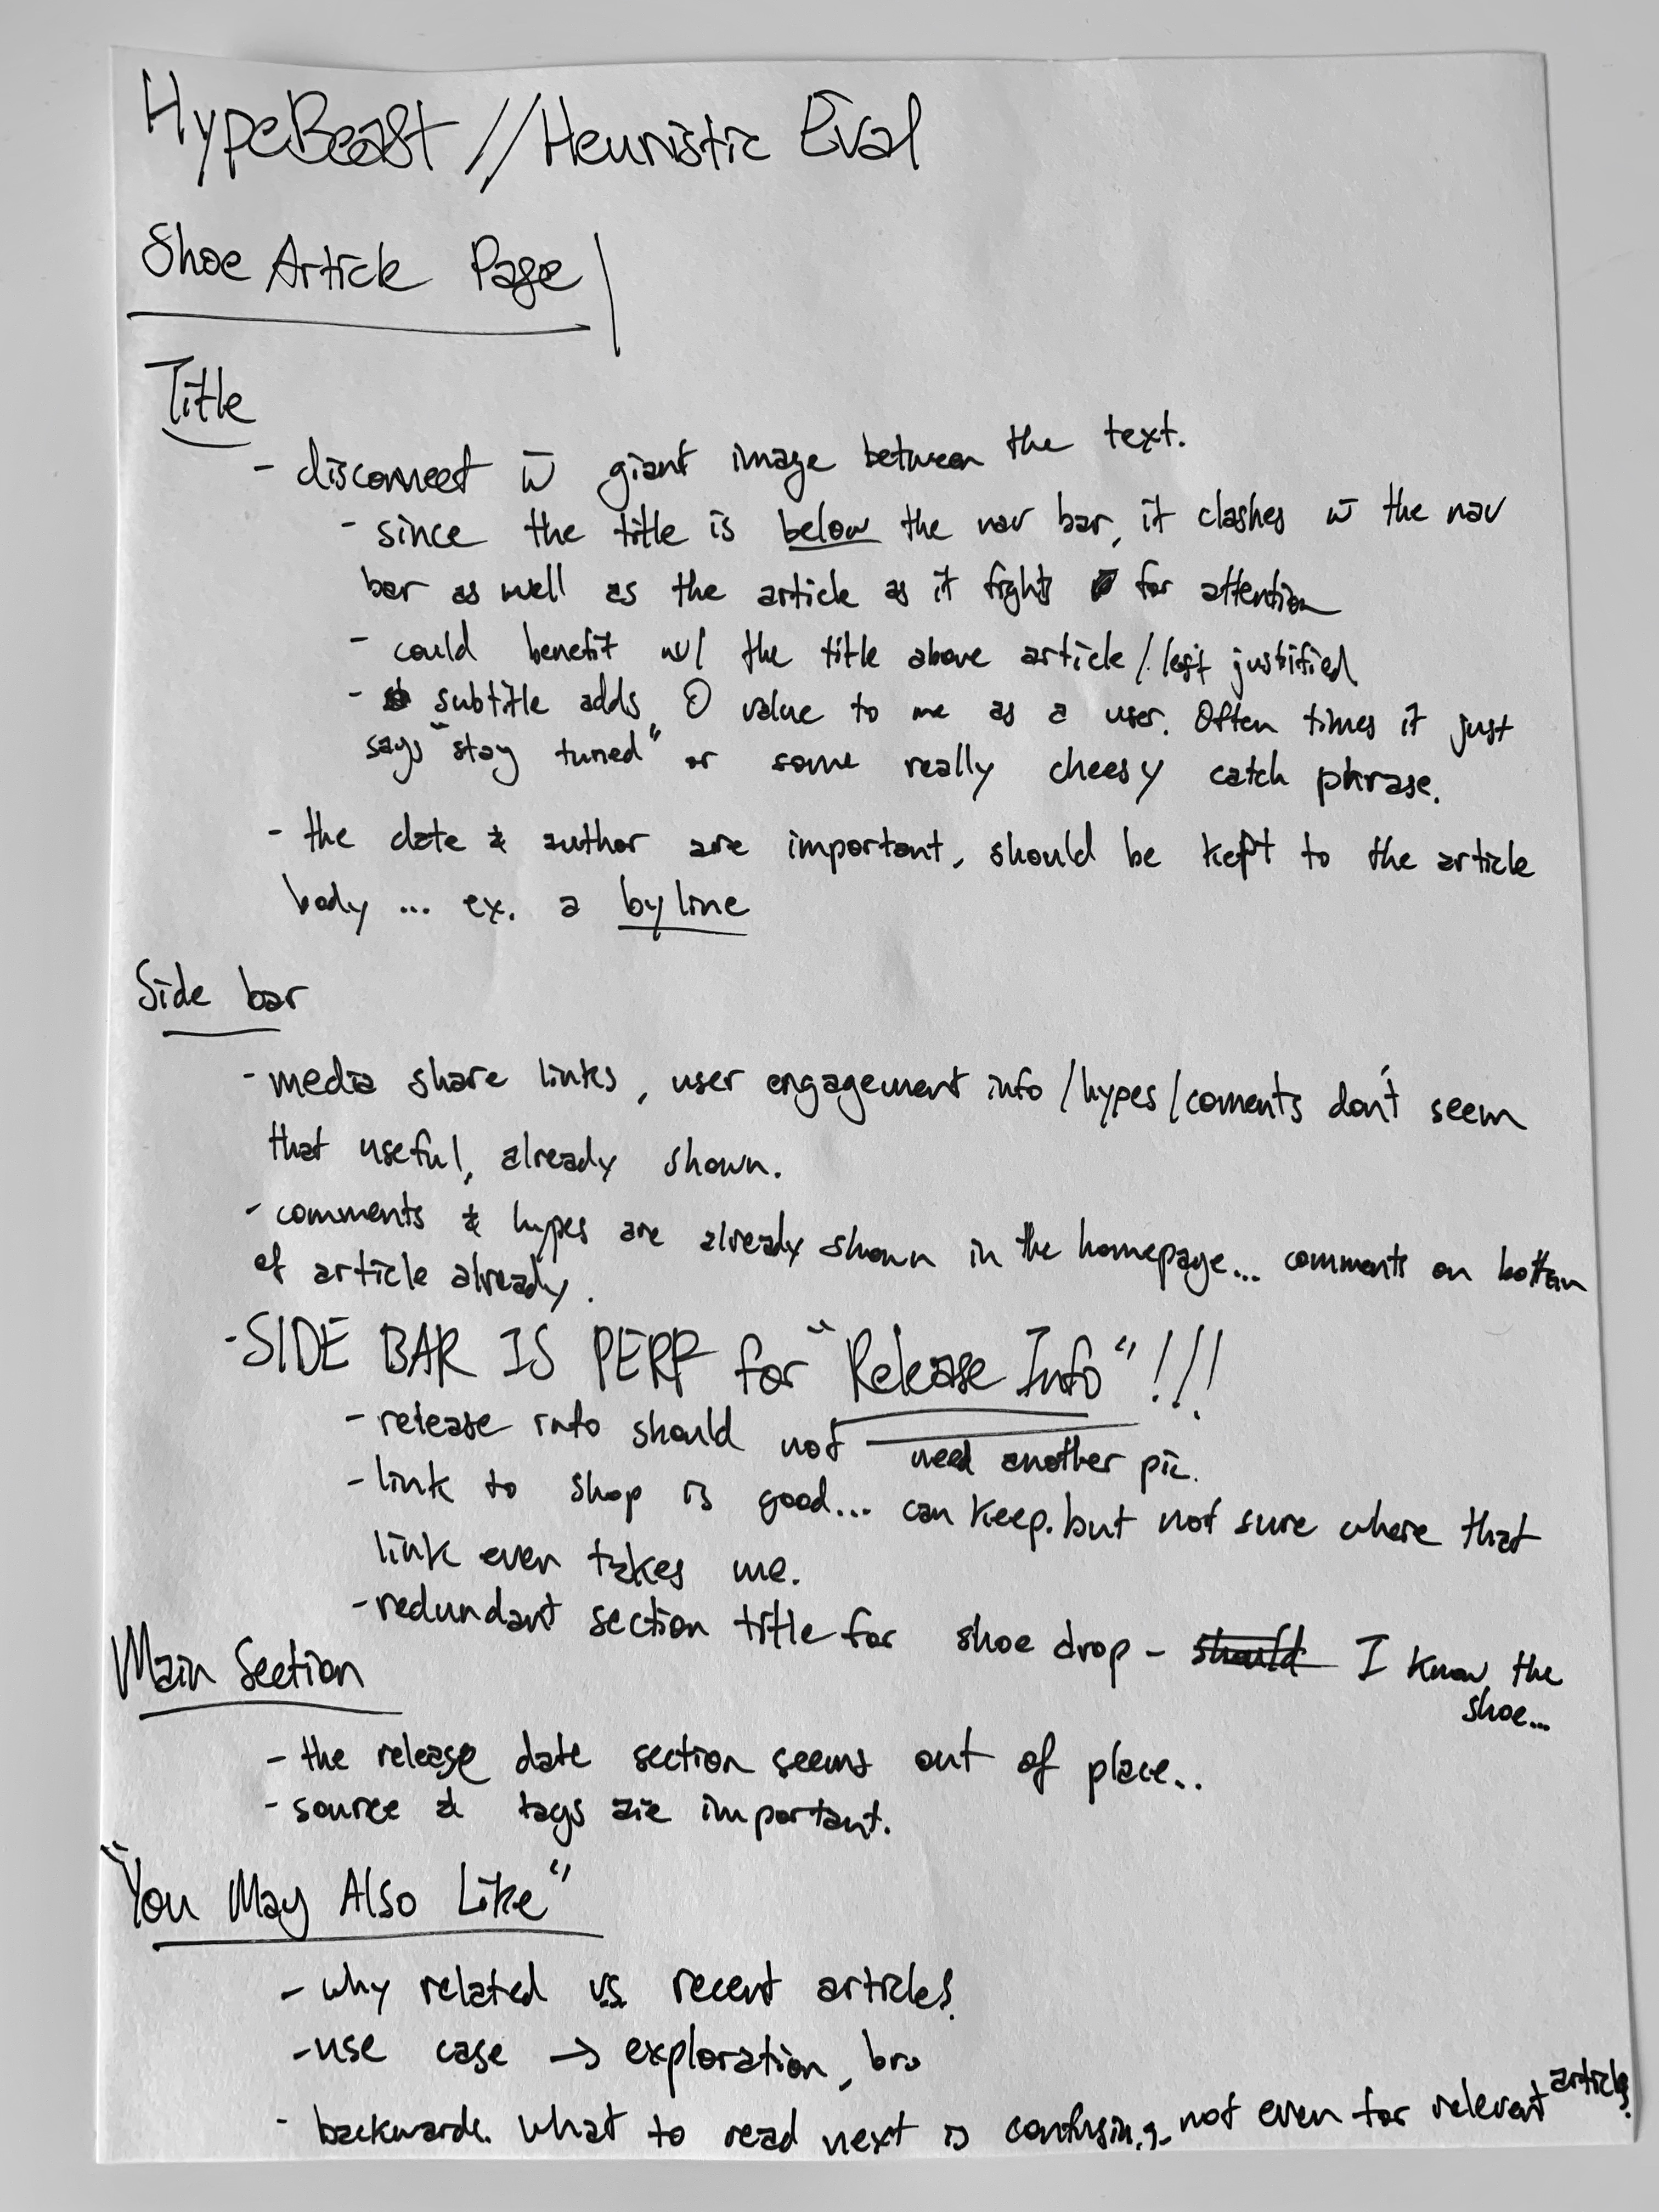 HypeBeast // Heuristic Eval
Shoe Article Page
Title
- disconnect w̄ giant image between the text.
- since the title is below the nav bar, it clashes w̄ the nav
bar as well as the article as it fights for attention
- could benefit w/ the title above article / left justified
- subtitle adds 0 value to me as a user. Often times it just
says "stay tuned" or some really cheesy catch phrase.
- the date & author are important, should be kept to the article
body ... ex. a byline
Side bar
- media share links, user engagement info / hypes / coments don't seem
that useful, already shown.
- comments & hypes are already shown in the homepage... comments on bottom
of article already.
- SIDE BAR IS PERF for "Release Info" !!!
- release info should not need another pic.
- link to shop is good... can keep. but not sure where that
link even takes me.
- redundant section title for shoe drop - should I know the
shoe...
Main Section
- the release date section seems out of place..
- source & tags are important.
"You May Also Like"
- why related vs. recent articles?
- use case → exploration, bro
- backwards. what to read next is confusing. not even for relevent articles?